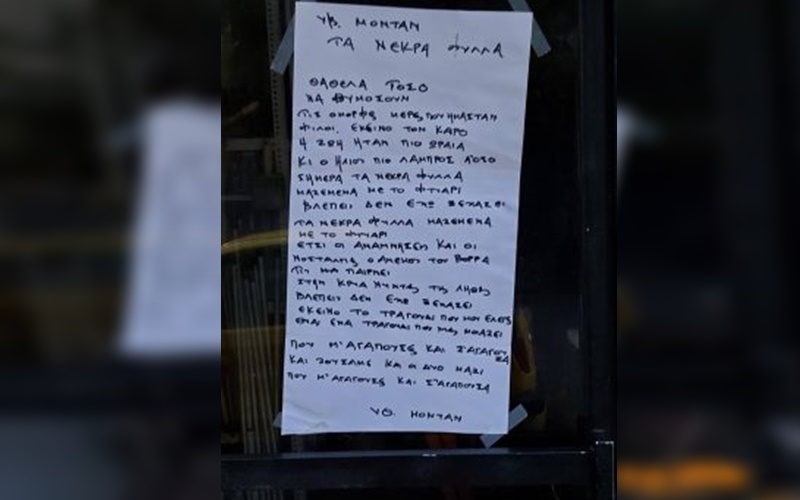 ΥΒ. ΜΟΝΤΑΝ
ΤΑ ΝΕΚΡΑ ΦΥΛΛΑ
ΘΑΘΕΛΑ ΤΟΣΟ
ΝΑ ΘΥΜΟΣΟΥΝ
ΤΙΣ ΟΜΟΡΦΕΣ ΜΕΡΕΣ ΠΟΥ ΗΜΑΣΤΑΝ
ΦΙΛΟΙ. ΕΚΕΙΝΟ ΤΟΝ ΚΑΡΟ
Η ΖΩΗ ΗΤΑΝ ΠΙΟ ΩΡΑΙΑ
ΚΙ Ο ΗΛΙΟΣ ΠΙΟ ΛΑΜΠΡΟΣ ΑΠ'ΟΣΟ
ΣΗΜΕΡΑ ΤΑ ΝΕΚΡΑ ΦΥΛΛΑ
ΜΑΖΕΜΕΝΑ ΜΕ ΤΟ ΦΤΙΑΡΙ
ΒΛΕΠΕΙΣ ΔΕΝ ΕΧΩ ΞΕΧΑΣΕΙ
ΤΑ ΝΕΚΡΑ ΦΥΛΛΑ ΜΑΖΕΜΕΝΑ
ΜΕ ΤΟ ΦΤΙΑΡΙ
ΕΤΣΙ ΟΙ ΑΝΑΜΝΗΣΕΙΣ ΚΑΙ ΟΙ
Ο ΑΝΕΜΟΣ ΤΟΥ ΒΟΡΡΑ
ΤΙΣ ΠΑΙΡΝΕΙ
ΣΤΗΝ ΚΡΥΑ ΝΥΧΤΑ ΤΗΣ ΛΗΘΗΣ
ΒΛΕΠΕΙΣ ΔΕΝ ΕΧΩ ΞΕΧΑΣΕΙ
ΕΚΕΙΝΟ ΤΟ ΤΡΑΓΟΥΔΙ ΠΟΥ ΜΟΥ ΕΛΕΓΕΣ
ΕΙΝΑΙ ΕΝΑ ΤΡΑΓΟΥΔΙ ΠΟΥ ΜΑΣ ΜΟΙΑΖΕΙ
ΠΟΥ Μ'ΑΓΑΠΟΥΣΕΣ ΚΑΙ Σ'ΑΓΑΠΟΥΣΑ
ΚΑΙ ΖΟΥΣΑΜΕ ΚΑΙ ΟΙ ΔΥΟ ΜΑΖΙ
ΠΟΥ Μ'ΑΓΑΠΟΥΣΕΣ ΚΑΙ Σ'ΑΓΑΠΟΥΣΑ
ΥΒ. ΜΟΝΤΑΝ